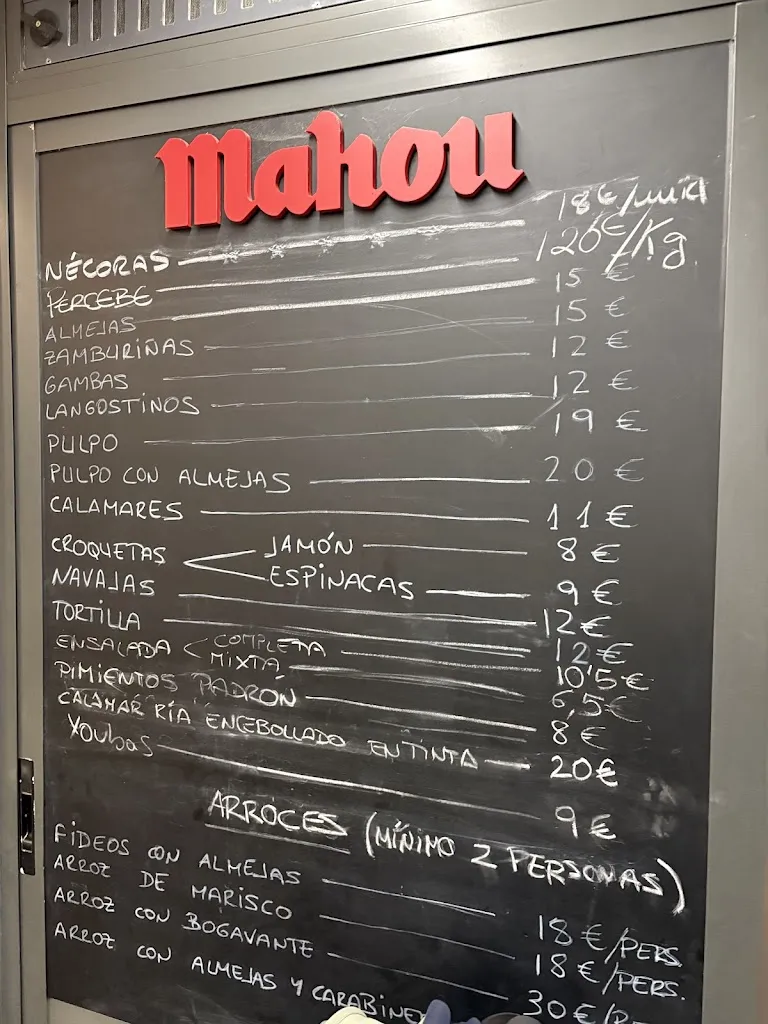 Mahou
NÉCORAS 18€/unid
PERCEBE 120€/Kg
ALMEJAS 15 €
ZAMBURIÑAS 15 €
GAMBAS 12 €
LANGOSTINOS 12 €
PULPO 19 €
PULPO CON ALMEJAS 20 €
CALAMARES 11 €
CROQUETAS JAMÓN 8 €
ESPINACAS 9 €
NAVAJAS 12 €
TORTILLA 12 €
ENSALADA COMPLETA 10'5 €
MIXTA 6,5 €
PIMIENTOS PADRÓN 8 €
CALAMAR RÍA ENCEBOLLADO EN TINTA 20€
Xoubas 9 €
ARROCES (MÍNIMO 2 PERSONAS)
FIDEOS CON ALMEJAS 18 €/PERS.
ARROZ DE MARISCO 18 €/PERS.
ARROZ CON BOGAVANTE 30 €/P
ARROZ CON ALMEJAS Y CARABINE